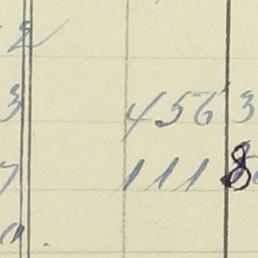 2
3 456 3
7 111 8